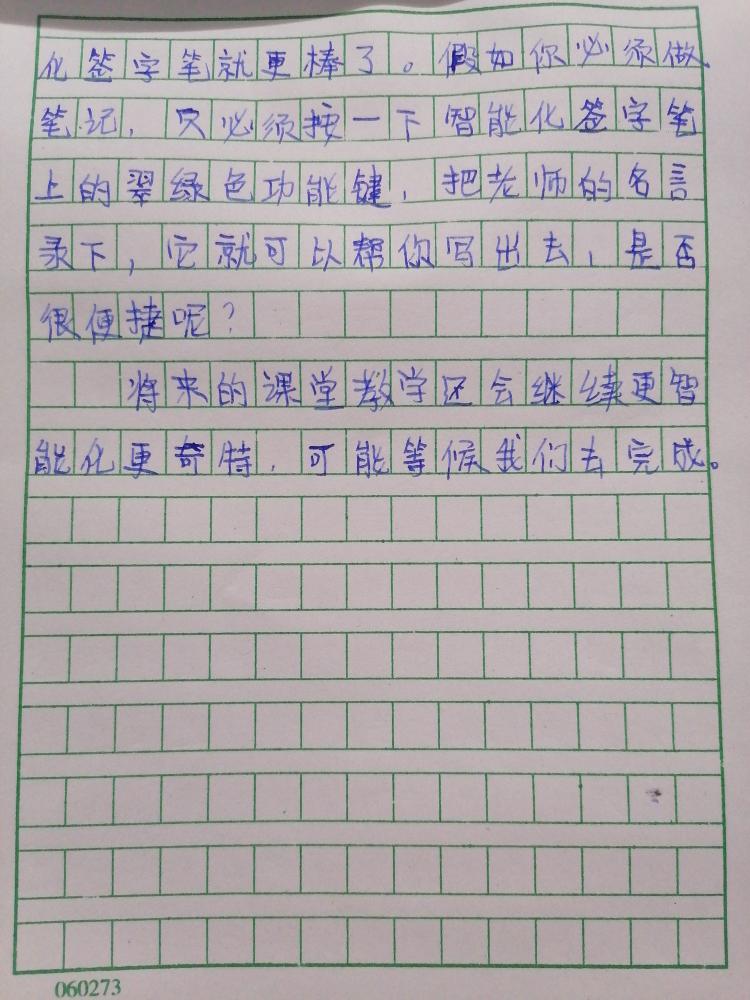 化签字笔就更棒了。假如你必须做
笔记，只必须按一下智能化签字笔
上的翠绿色功能键，把老师的名言
录下，它就可以帮你写出去，是否
很便捷呢？
将来的课堂教学还会继续更智
能化更奇特，可能等候我们去完成。
060273